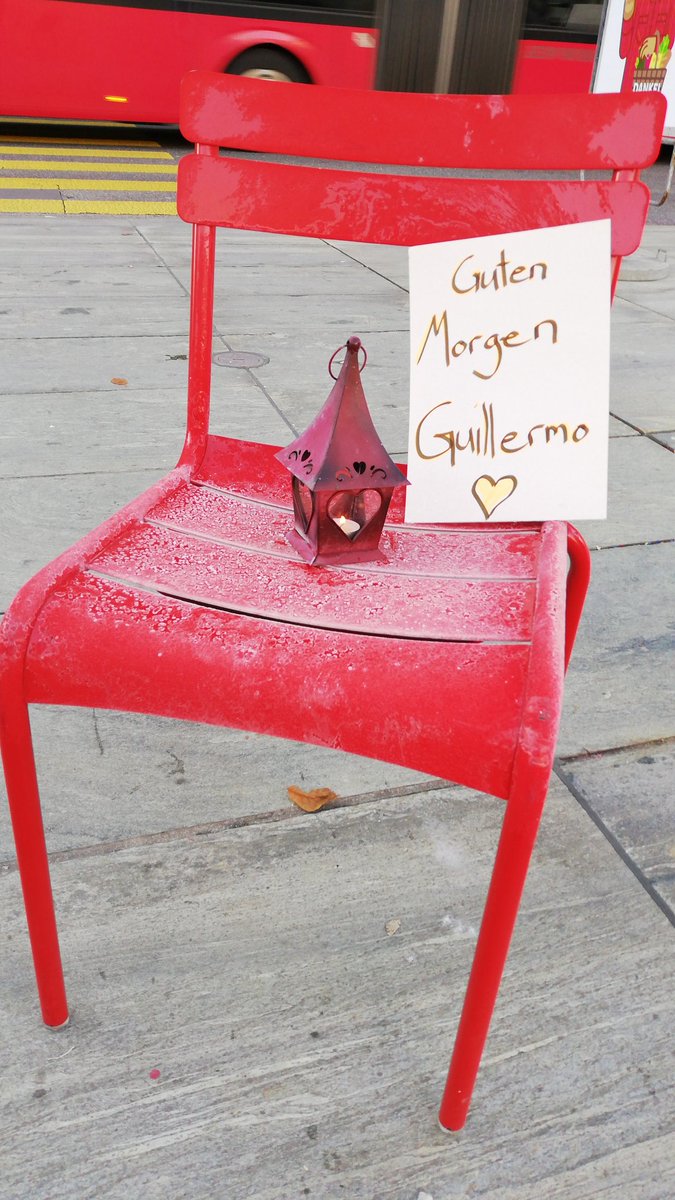 DANKE!
Guten
Morgen
Guillermo